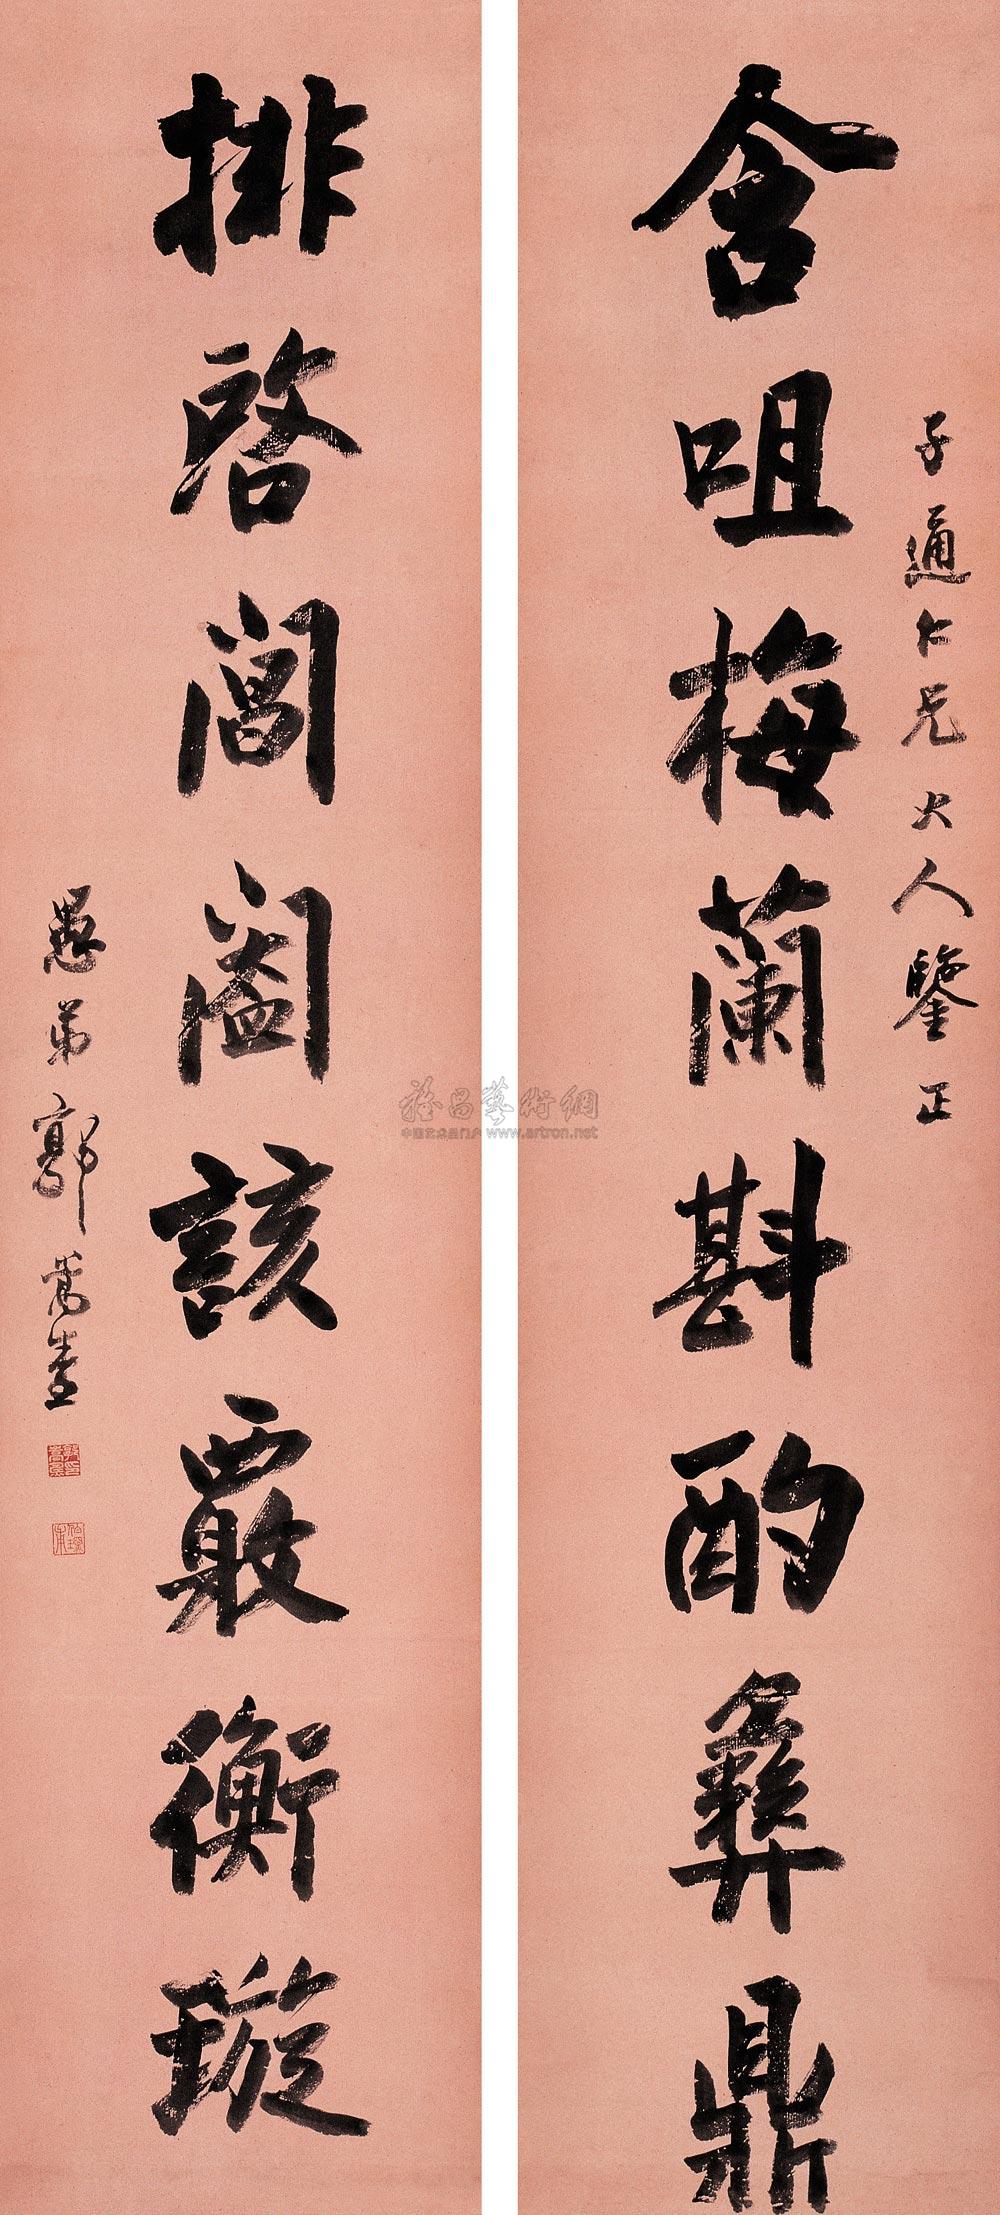 子通仁兄大人鑒正
含咀梅蘭斟酌彝鼎
排啓閶闔該覈衡璇
愚弟郭嵩燾
雅昌藝術網
中国艺术品门户 www.artron.net